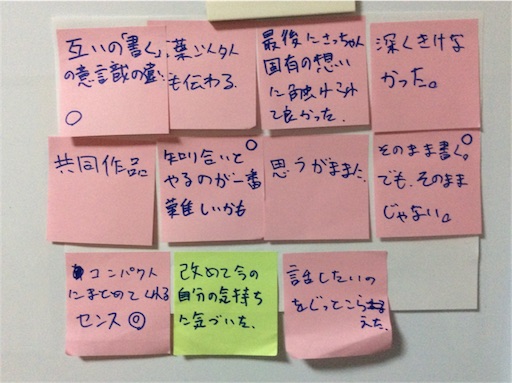 互いの「書く」
の意識の違い
○
葉ごんタん
も伝わる。
最後にさっちゃん
固有の想い
に触れられ
て良かった。
深くきけな
かった。
共同作品
○
知り合いと
やるのが一番
難しいかも
思うがままに
○
そのまま書く。
でも、そのまま
じゃない。
コンパクト
にまとめてくれる
センス◎
改めて今の
自分の気持ち
に気づいた。
話したいの
をぐっとこら
えた。